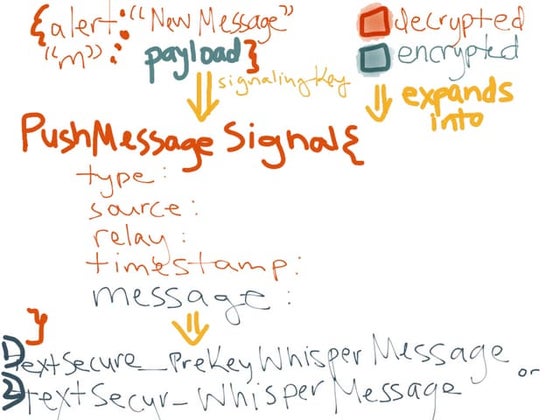 {alert: "New Message"
"m": payload}
decrypted
encrypted
signalingKey
expands
into
PushMessageSignal{
type:
source:
relay:
timestamp:
message:
}
1) TextSecure_PreKeyWhisperMessage or
2) TextSecur_WhisperMessage